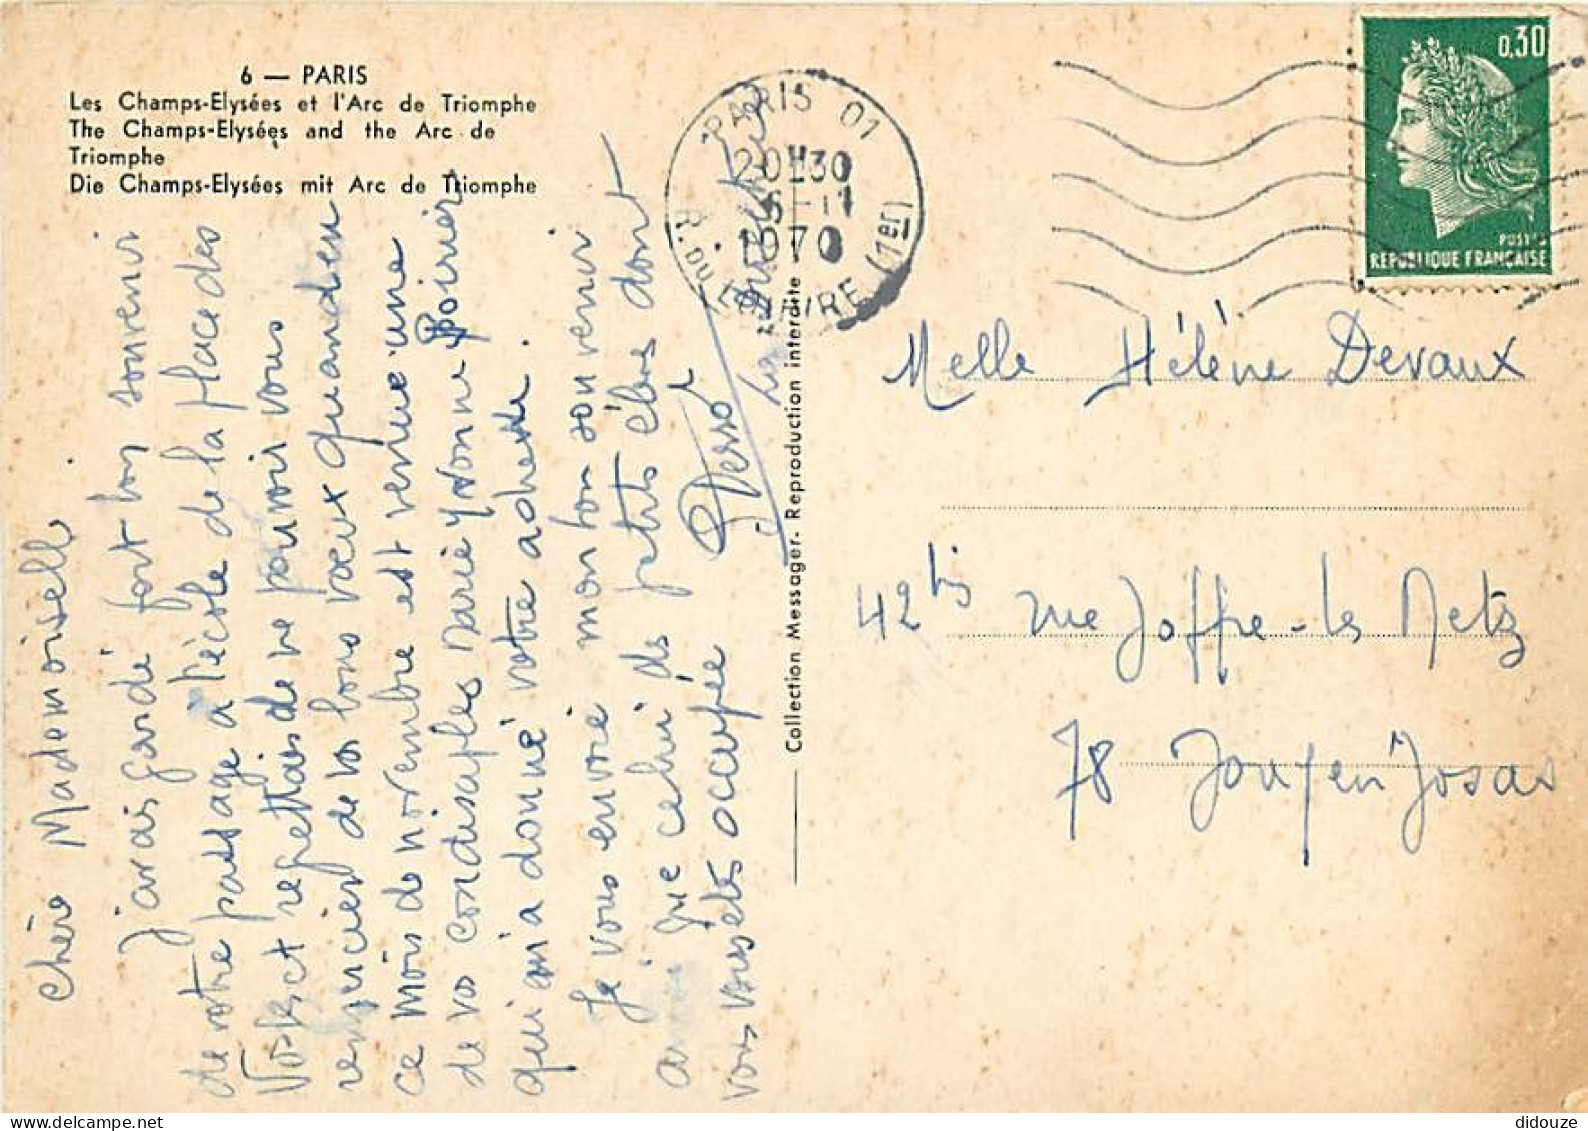 6 — PARIS
Les Champs-Elysées et l'Arc de Triomphe
The Champs-Elysées and the Arc de
Triomphe
Die Champs-Elysées mit Arc de Triomphe
Chère Mademoiselle
J'avais gardé fort bon souvenir
de votre passage à l'école de la place des
Vosges et regrettais de ne pouvoir vous
remercier de vos bons vœux quand en
ce mois de novembre est venue une
de vos condisciples Marie Yvonne Poirier
qui m'a donné votre adresse.
Je vous envoie mon bon souvenir
ainsi que celui des petits élèves dont
vous vous êtes occupée
Collection Messager - Reproduction interdite
PARIS 01
20H30
1970
R. DU LOUVRE (1er)
0,30
POSTES
REPUBLIQUE FRANÇAISE
Melle Hélène Devaux
42 bis rue Joffre-les Metz
78 Jouy en Josas
didouze